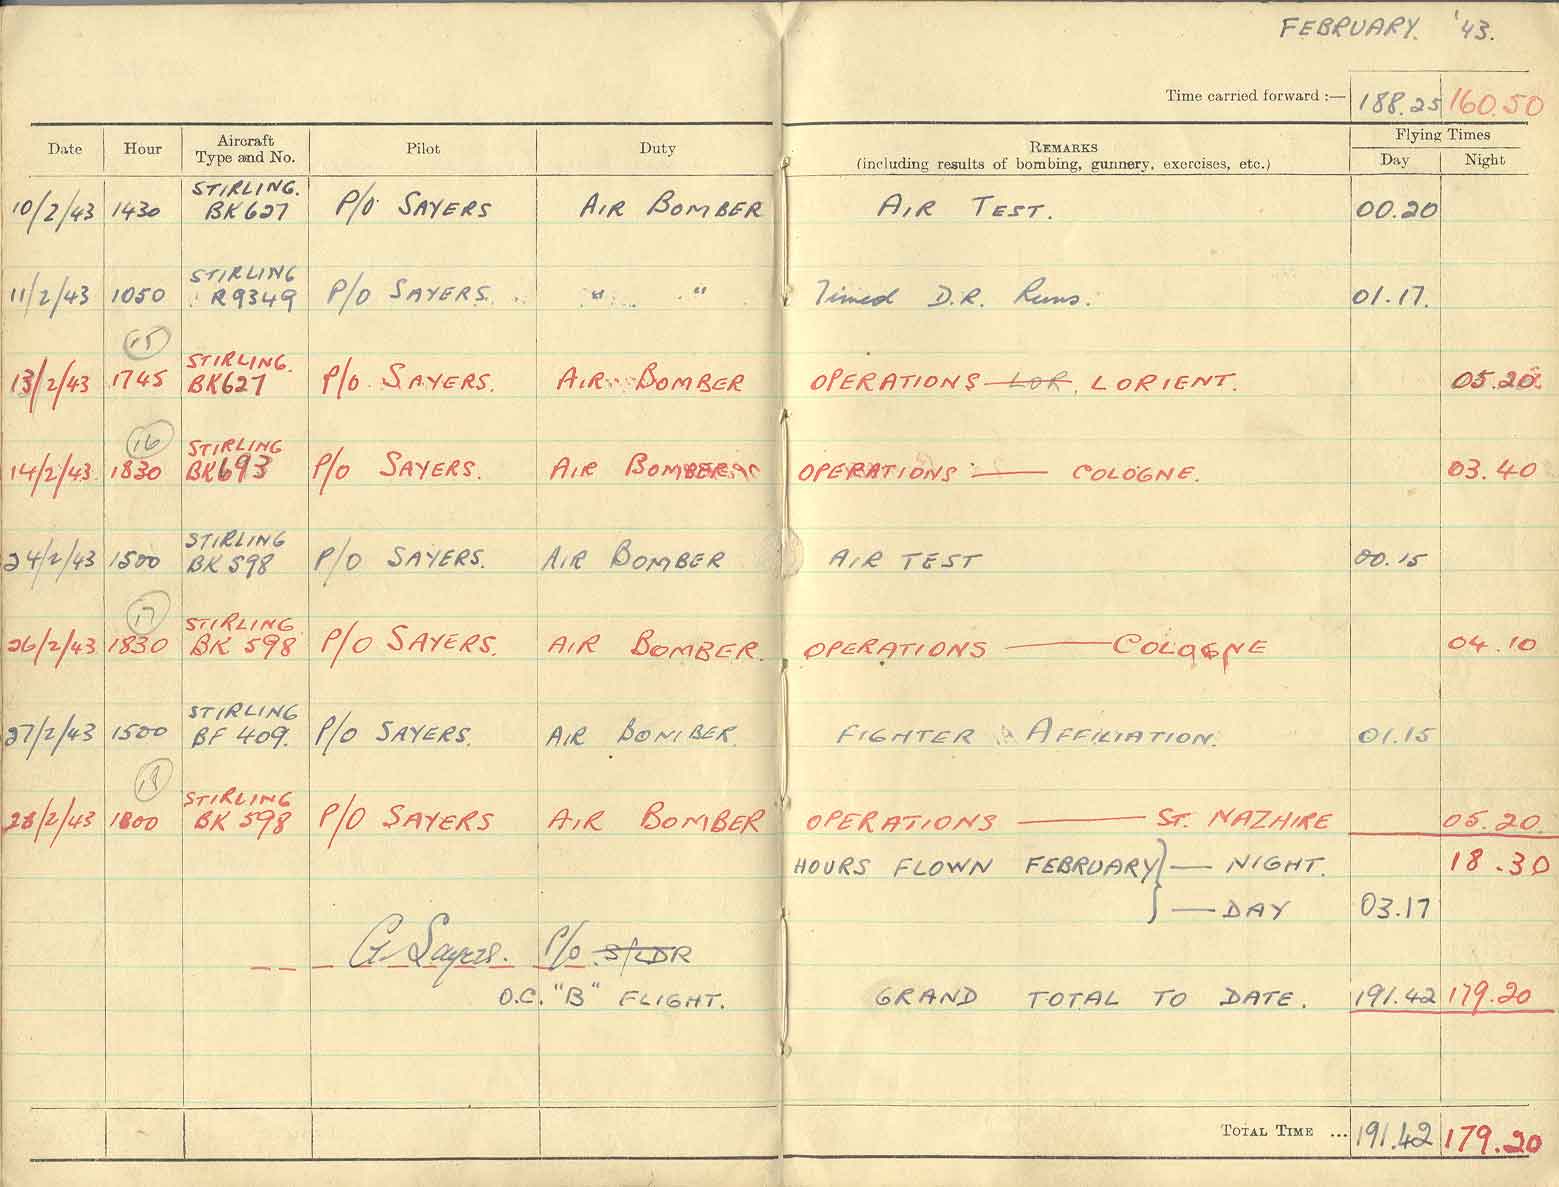 FEBRUARY. '43.
Time carried forward :— 188.25 160.50
Date Hour Aircraft Type and No. Pilot Duty REMARKS (including results of bombing, gunnery, exercises, etc.) Flying Times Day Night
STIRLING.
10/2/43 1430 BK627 P/O SAYERS AIR BOMBER AIR TEST. 00.20
STIRLING
11/2/43 1050 R9349 P/O SAYERS. " " Timed D.R. Runs. 01.17.
15
STIRLING.
13/2/43 1745 BK627 P/O SAYERS. AIR BOMBER OPERATIONS — LOR, LORIENT. 05.20
16
STIRLING
14/2/43 1830 BK693 P/O SAYERS. AIR BOMBER OPERATIONS — COLOGNE. 03.40
STIRLING
24/2/43 1500 BK 598 P/O SAYERS. AIR BOMBER AIR TEST 00.15
17
STIRLING
26/2/43 1830 BK 598 P/O SAYERS. AIR BOMBER. OPERATIONS — COLOGNE 04.10
STIRLING
27/2/43 1500 BF 409. P/O SAYERS. AIR BOMBER. FIGHTER AFFILIATION. 01.15
18
STIRLING
28/2/43 1800 BK 598 P/O SAYERS AIR BOMBER OPERATIONS — ST. NAZHIRE 05.20.
HOURS FLOWN FEBRUARY } — NIGHT. 18.30
} — DAY 03.17
G Sayers. P/O S/LDR
O.C. "B" FLIGHT. GRAND TOTAL TO DATE. 191.42 179.20
TOTAL TIME ... 191.42 179.20